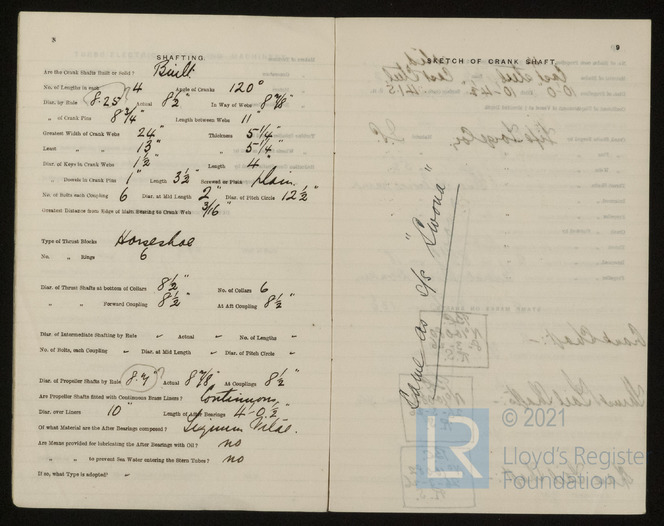 8
SHAFTING.
Are the Crank Shafts Built or Solid? Built
No. of Lengths in each 4 Angle of Cranks 120°
Diar. by Rule 8.25" Actual 8½" In Way of Webs 8⅞"
„ of Crank Pins 8¾" Length between Webs 11"
Greatest Width of Crank Webs 24" Thickness 5-¼"
Least „ „ 13" „ 5-¼"
Diar. of Keys in Crank Webs 1½" Length 4"
„ Dowels in Crank Pins 1" Length 3½" Screwed or Plain plain
No. of Bolts each Coupling 6 Diar. at Mid Length 2" Diar. of Pitch Circle 12½"
Greatest Distance from Edge of Main Bearing to Crank Web 3/16"
Type of Thrust Blocks Horseshoe
No. „ Rings 6
Diar. of Thrust Shafts at bottom of Collars 8½" No. of Collars 6
„ „ Forward Coupling 8½" At Aft Coupling 8½"
Diar. of Intermediate Shafting by Rule - Actual - No. of Lengths -
No. of Bolts, each Coupling - Diar. at Mid Length - Diar. of Pitch Circle -
Diar. of Propeller Shafts by Rule Actual 8⅞" At Couplings 8½"
Are Propeller Shafts fitted with Continuous Brass Liners? Continuous
Diar. over Liners 10" Length of After Bearings 4'-0½"
Of what Material are the After Bearings composed? Lignum Vitae.
Are Means provided for lubricating the After Bearings with Oil? no
„ „ to prevent Sea Water entering the Stern Tubes? no
If so, what Type is adopted? -
9
SKETCH OF CRANK SHAFT.
Same as S/S
LR
© 2021
Lloyd's Register
Foundation